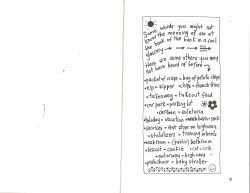 Some words you might not
know the meaning of are at
the back of the book in a cool
glossary
Here are some others you may
not have heard of before
packet of crisps = bag of potato chips
zip = zipper chips = french fries
takeaway = takeout food
car park = parking lot
canteen = cafeteria
holiday = vacation washbasin = sink
services = rest stops on highway
stabilizers = training wheels
washroom = (public) bathroom
biscuit = cookie cot = crib
motorway = highway
pushchair = baby stroller